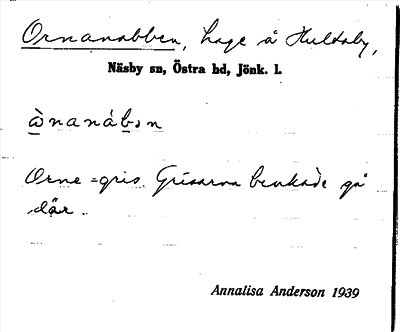 Ornanabben, hage å Hultaby,
Näsby sn, Östra hd, Jönk. l.
ànanábən
Orne = gris. Grisarna brukade gå
där.
Annalisa Anderson 1939